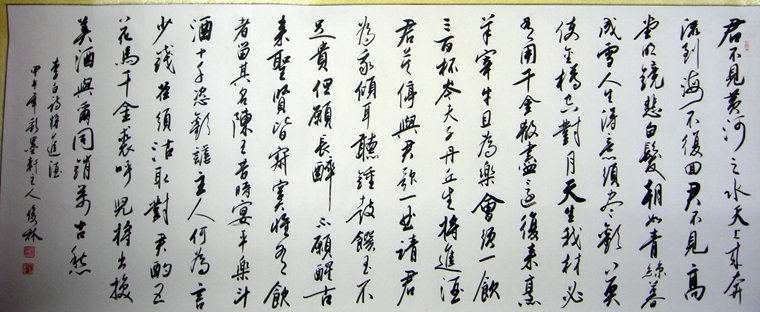 君不見黃河之水天上來奔
流到海不復回君不見高
堂明鏡悲白髮朝如青絲暮
成雪人生得意須盡歡莫
使金樽空對月天生我材必
有用千金散盡還復來烹
羊宰牛且為樂會須一飲
三百杯岑夫子丹丘生將進酒
君莫停與君歌一曲請君
為我傾耳聽鐘鼓饌玉不
足貴但願長醉不願醒古
來聖賢皆寂寞惟有飲
者留其名陳王昔時宴平樂斗
酒十千恣歡謔主人何為言
少錢徑須沽取對君酌五
花馬千金裘呼兒將出換
美酒與爾同銷萬古愁
李白詩將進酒
甲午年彩墨軒主人俊林